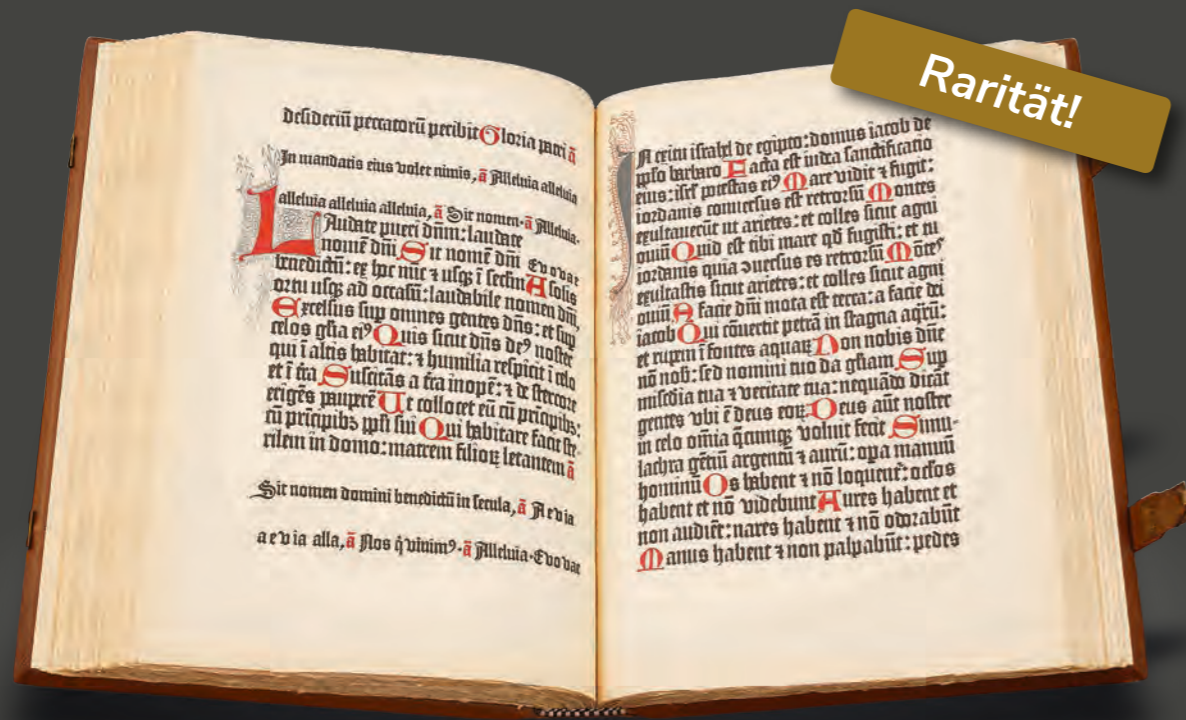 Rarität!
desideriū peccatorū peribit Gloria patri ā
In mandatis eius volet nimis, ā Alleluia alleluia
alleluia alleluia alleluia, ā Sit nomen·ā Alleluia·
LAudate pueri dn̄m: laudate
nomē dn̄i Sit nomē dn̄i Evovae
benedictū: ex hoc nūc ⁊ usqꝫ ī seclm̄ A solis
ortu usqꝫ ad occasū: laudabile nomen dn̄i,
Excelsus sup omnes gentes dn̄s: et sup
celos gl̄ia eiꝰ Quis sicut dn̄s deꝰ noster
qui ī altis habitat: ⁊ humilia respicit ī celo
et ī t̄ra Suscitās a t̄ra inopē: ⁊ de stercore
erigēs pauperē Ut collocet eū cū prīcipibꝫ:
cū prīcipibꝫ ppl̄i sui Qui habitare facit ste-
rilem in domo: matrem filioꝝ letantem ā
Sit nomen domini benedictū in secula, ā Aevia
aevia alla, ā Nos q̇ vivimꝰ·ā Alleluia·Evovae
IN exitu israhel de egipto: domus iacob de
pplo barbaro Facta est iudea sanctificatio
eius: isrl̄ potestas eiꝰ Mare vidit ⁊ fugit:
iordanis conuersus est retrorsū Montes
exultauerūt ut arietes: et colles sicut agni
ouiū Quid est tibi mare qd̄ fugisti: et tu
iordanis quia ↄuersus es retrorsū Mōtes
exultastis sicut arietes: et colles sicut agni
ouiū A facie dn̄i mota est terra: a facie dei
iacob Qui cōuertit petrā in stagna aqr̄ū:
et rupem ī fontes aquaꝝ Non nobis dn̄e
nō nob̄: sed nomini tuo da gl̄iam Sup
misc̄dia tua ⁊ veritate tua: nequādo dicāt
gentes vbi ē deus eoꝝ Deus aūt noster
in celo om̄ia q̄cumqꝫ voluit fecit Simu-
lachra gētiū argentū ⁊ aurū: opa manuū
hominū Os habent ⁊ nō loquent᷑: oclos
habent et nō videbunt Aures habent et
non audiēt: nares habent ⁊ nō odorabūt
Manus habent ⁊ non palpabūt: pedes